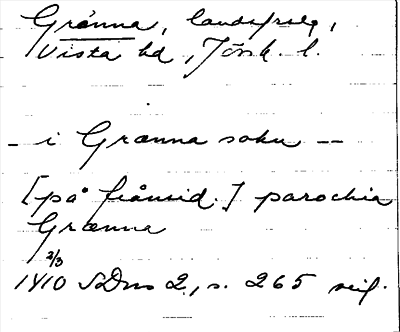 Gränna, landsförs.,
Vista hd, Jönk. l.
- i Grænna sokn --
[på frånsid.] parochia
Grænna
2/3
1410 SDns 2, s. 265 sigill